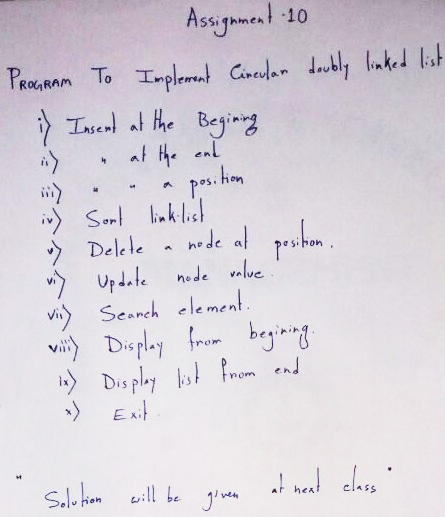 Assignment-10
PROGRAM To Implement Circular doubly linked list
i) Insert at the Begining
ii) " at the end
iii) " " a position
iv) Sort link-list
v) Delete a node at position.
vi) Update node value.
vii) Search element.
viii) Display from begining.
ix) Display list from end
x) Exit.
" Solution will be given at next class "